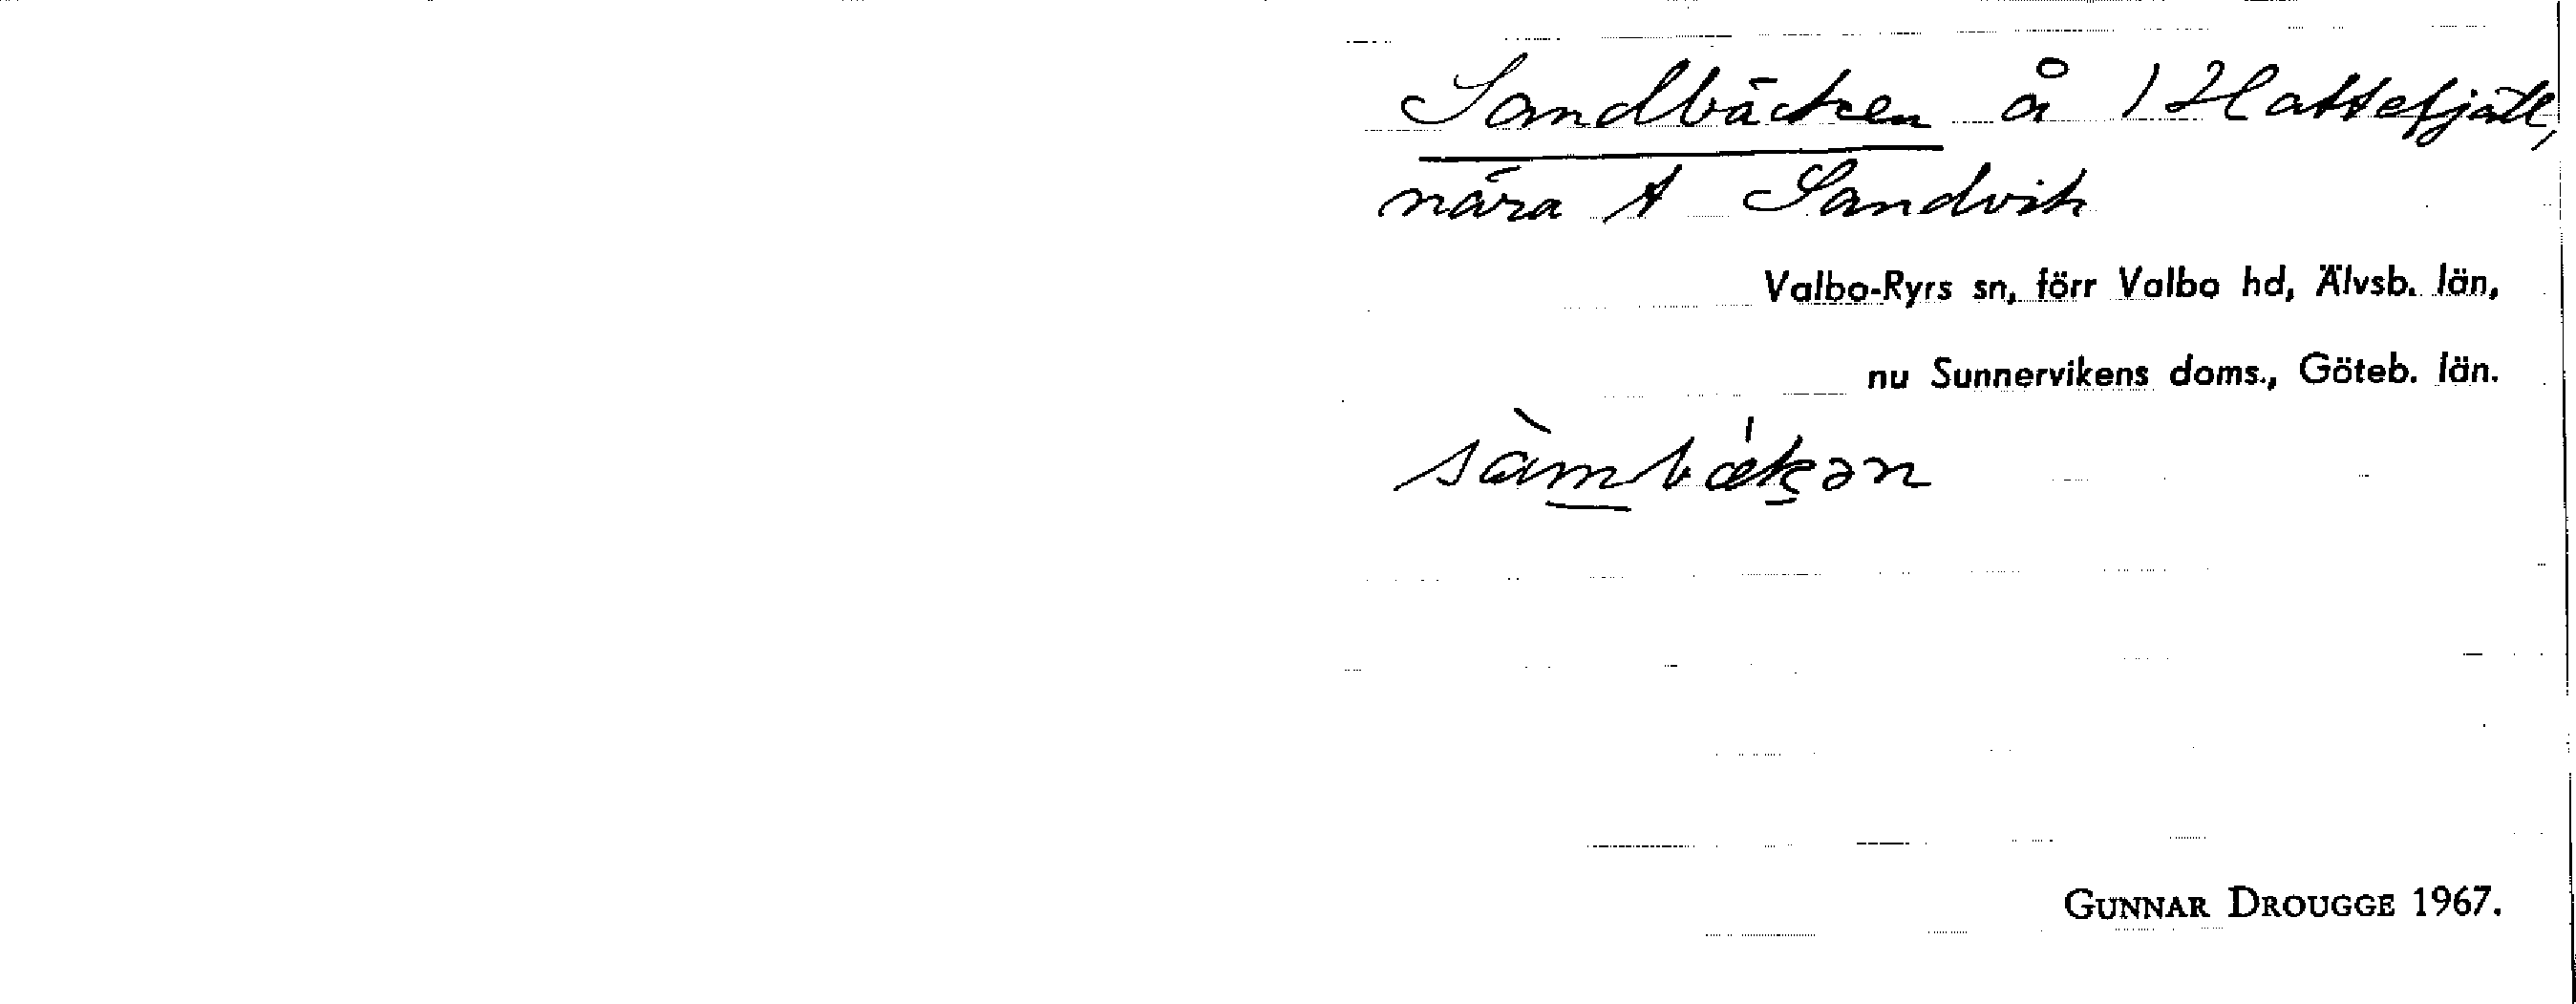 Sandbäcken å 1 Hattefjäll,
nära A Sandvik
Valbo-Ryrs sn, förr Valbo hd, Älvsb. län,
nu Sunnervikens doms., Göteb. län.
sàmbǽkən
GUNNAR DROUGGE 1967.